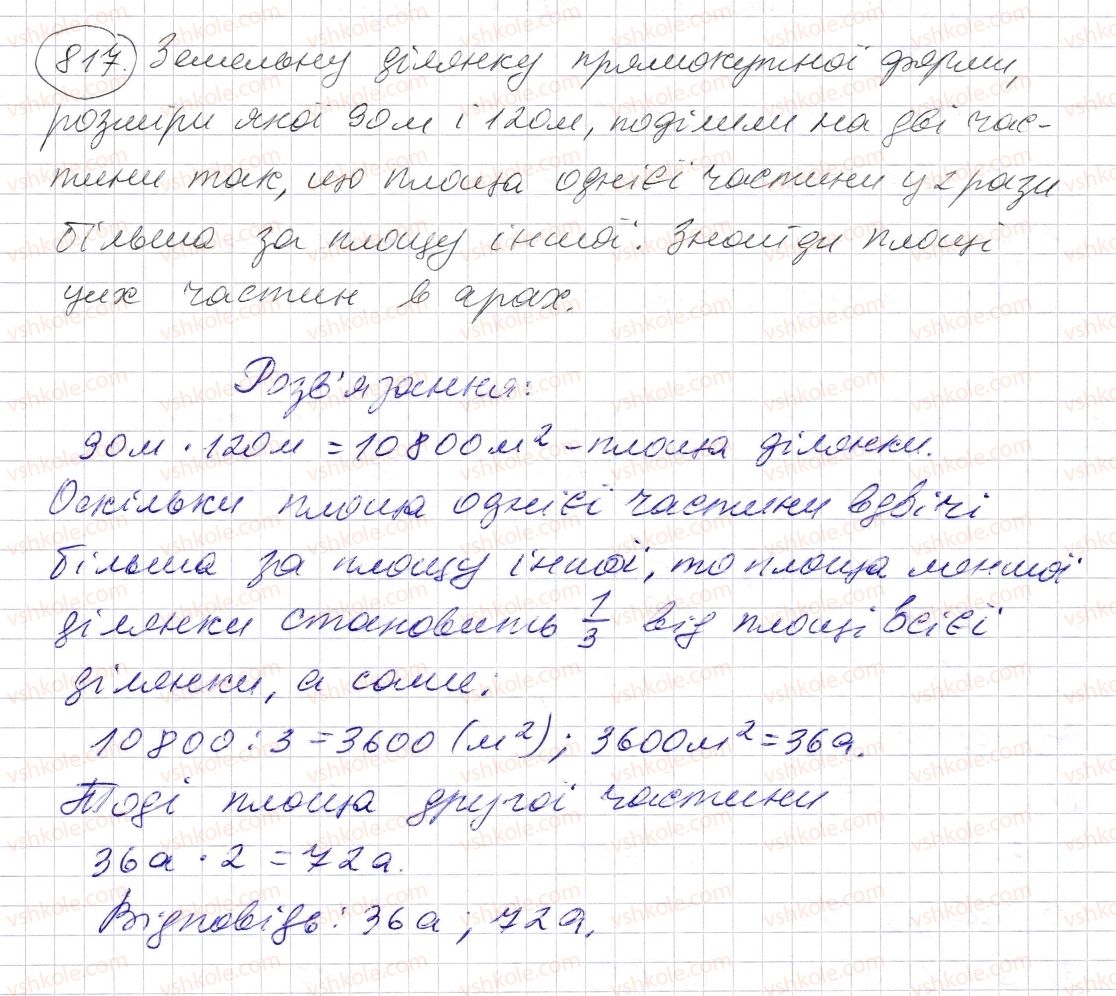 817. Земельну ділянку прямокутної форми,
розміри якої 90м і 120м, поділили на дві час-
тини так, що площа однієї частини у 2 рази
більша за площу іншої. Знайди площі
цих частин в арах.
Розв'язання:
90м · 120м = 10800м² - площа ділянки.
Оскільки площа однієї частини вдвічі
більша за площу іншої, то площа меншої
ділянки становить 1/3 від площі всієї
ділянки, а саме:
10800 : 3 = 3600 (м²); 3600м² = 36а.
Тоді площа другої частини
36а · 2 = 72а.
Відповідь: 36а; 72а.